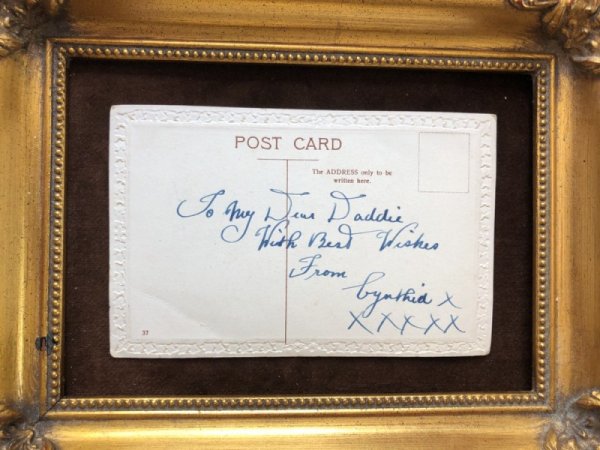 POST CARD
The ADDRESS only to be
written here.
To My Dear Daddie
With Best Wishes
From
Cynthia X
X X X X X
37